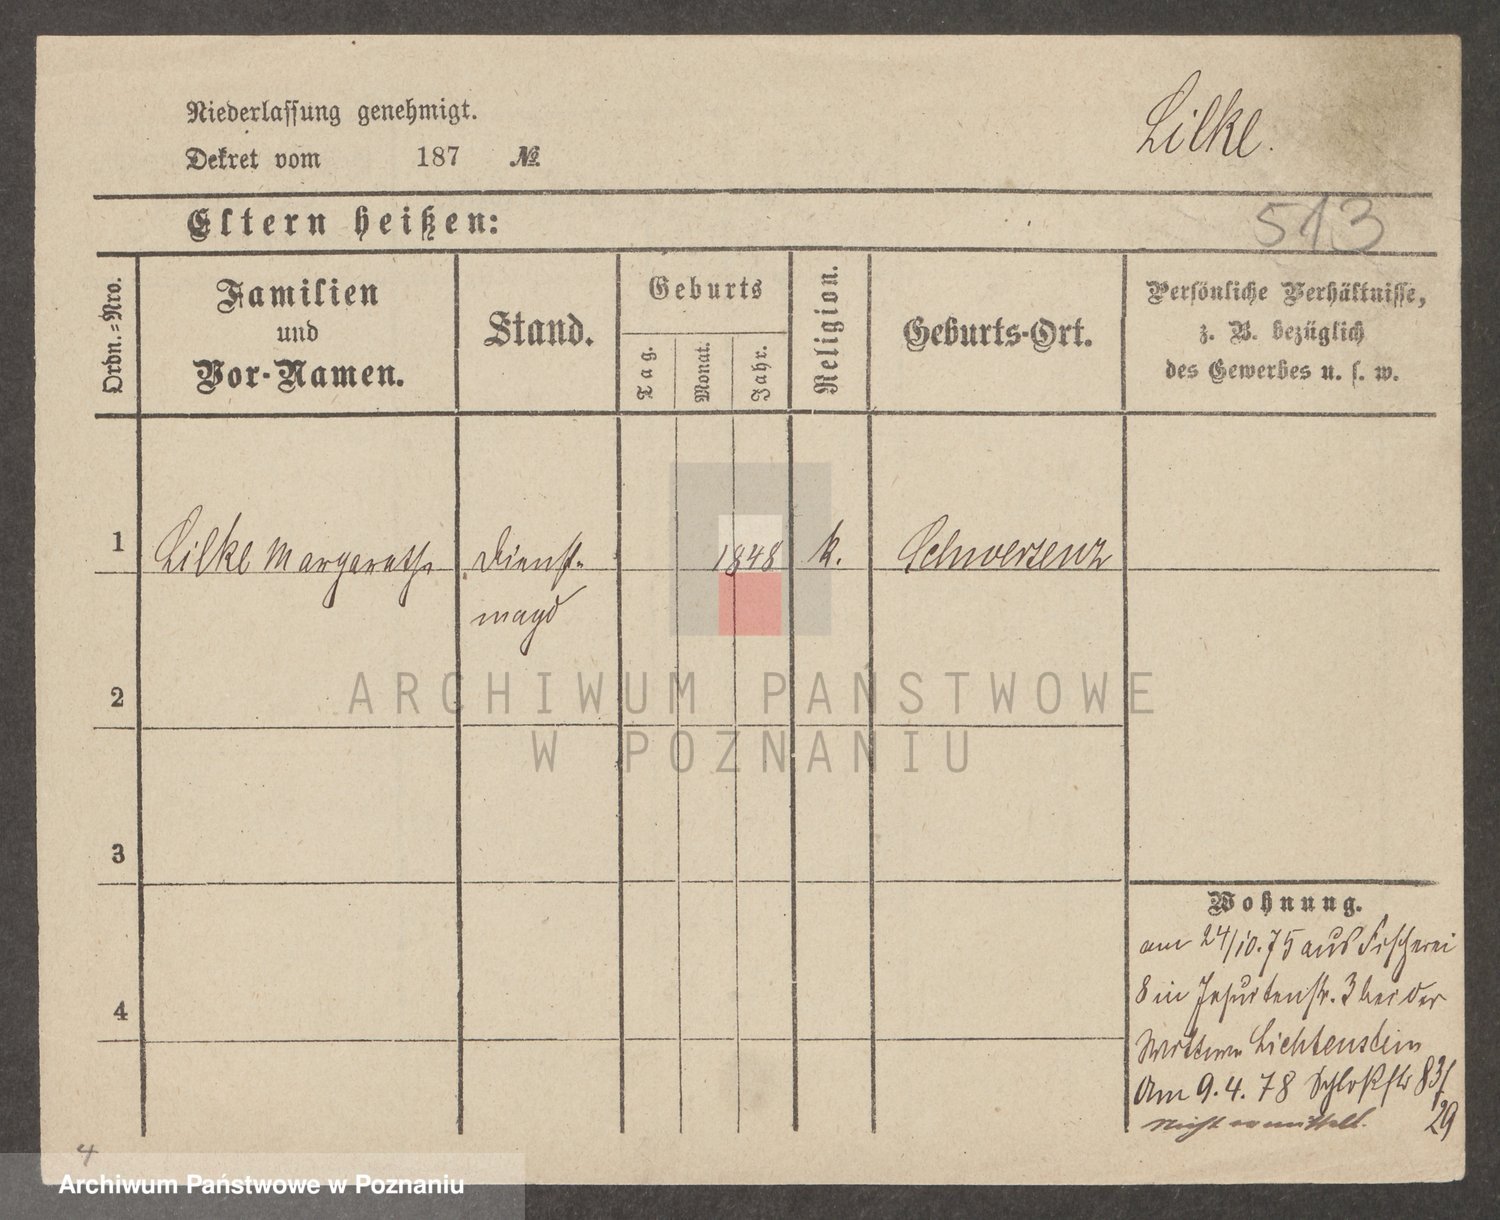 Niederlassung genehmigt.
Dekret vom 187 №
Lilke.
513
Eltern heißen:
Ordn.-Nro.
Familien
und
Vor-Namen.
Stand.
Geburts
Tag.
Monat.
Jahr.
Religion.
Geburts-Ort.
Persönliche Verhältnisse,
z. B. bezüglich
des Gewerbes u. s. w.
1 Lilke Margarethe Dienst- 1848 k. Schwersenz
magd
2
3
4
Wohnung.
am 24/10.75 aus Fischerei
8 in Jesuitenstr. 3 bei der
Wittwe Lichtenstein
Am 9.4.78 Schloßstr 83/
29
Nicht ermittelt.
4
ARCHIWUM PAŃSTWOWE
W POZNANIU
Archiwum Państwowe w Poznaniu